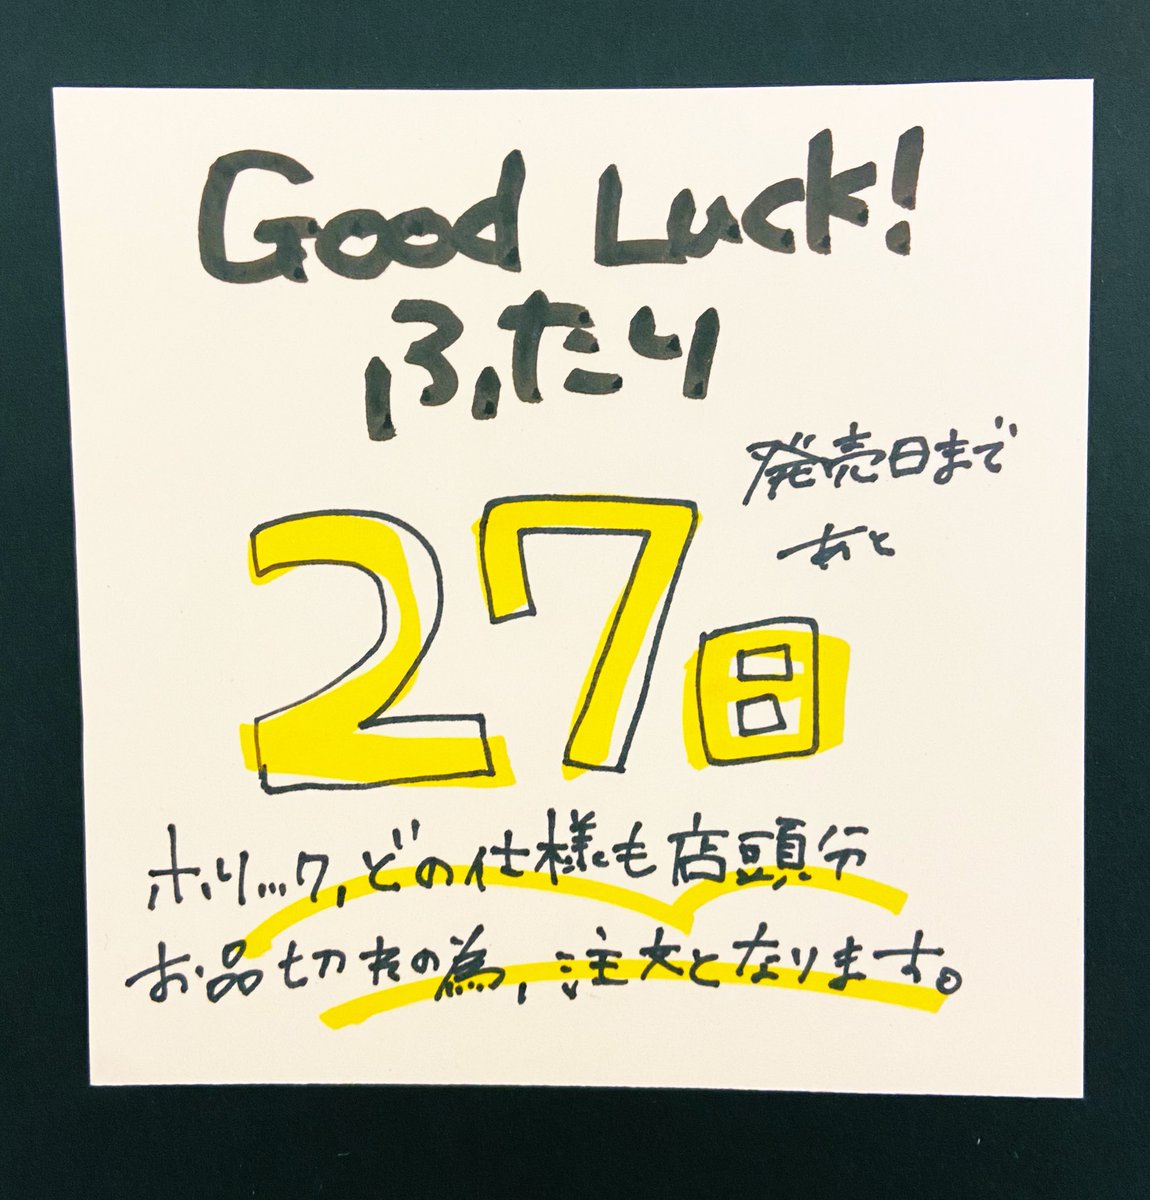 Good Luck!
ふたり
発売日まで
あと
27日
ホリック,どの仕様も店頭分
お品切れの為,注文となります。